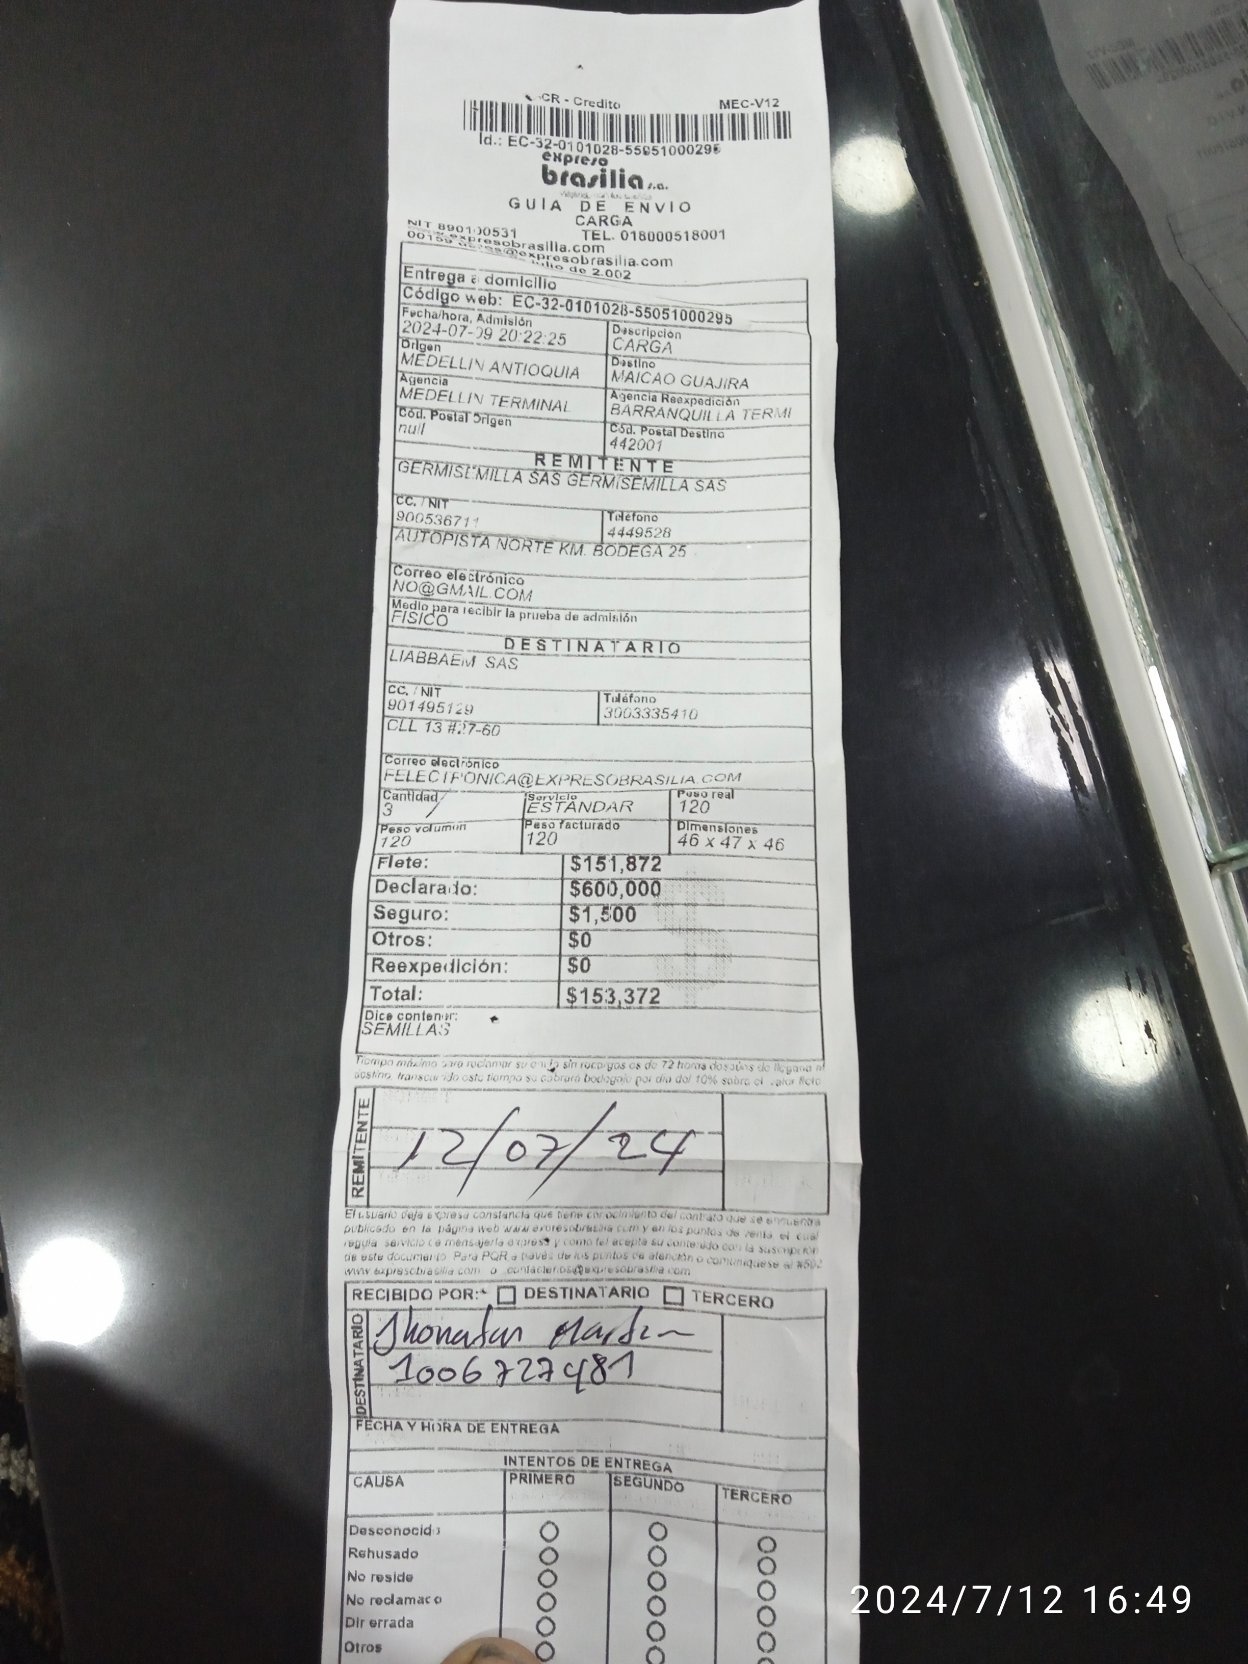 CR - Credito MEC-V12
Id.: EC-32-0101028-55051000295
expreso
brasilia s.a.
GUIA DE ENVIO
CARGA
NIT 890100531 TEL. 018000518001
www.expresobrasilia.com
@expresobrasilia.com
00159 julio de 2.002
Entrega a domicilio
Código web: EC-32-0101028-55051000295
Fecha/hora, Admisión Descripción
2024-07-09 20:22:25 CARGA
Origen Destino
MEDELLIN ANTIOQUIA MAICAO GUAJIRA
Agencia Agencia Reexpedición
MEDELLIN TERMINAL BARRANQUILLA TERMI
Cód. Postal Origen Cód. Postal Destino
null 442001
REMITENTE
GERMISEMILLA SAS GERMISEMILLA SAS
CC. / NIT Teléfono
900536711 4449528
AUTOPISTA NORTE KM. BODEGA 25
Correo electrónico
NO@GMAIL.COM
Medio para recibir la prueba de admisión
FISICO
DESTINATARIO
LIABBAEM SAS
CC. / NIT Teléfono
901495129 3003335410
CLL 13 #27-60
Correo electrónico
FELECTRONICA@EXPRESOBRASILIA.COM
Cantidad Servicio Peso real
3 ESTANDAR 120
Peso volumen Peso facturado Dimensiones
120 120 46 x 47 x 46
Flete: $151,872
Declarado: $600,000
Seguro: $1,500
Otros: $0
Reexpedición: $0
Total: $153,372
Dice contener:
SEMILLAS
Tiempo máximo para reclamar su envío sin recargos es de 72 horas después de llegada al
destino, transcurrido este tiempo se cobrará bodegaje por día del 10% sobre el valor flete
REMITENTE
12/07/24
El usuario deja expresa constancia que tiene conocimiento del contrato que se encuentra
publicado en la página web www.expresobrasilia.com y en los puntos de venta, el cual
regula servicio de mensajería express y como tal acepta su contenido con la suscripción
de este documento. Para PQR a través de los puntos de atención o comuníquese al #502
www.expresobrasilia.com o contactenos@expresobrasilia.com
RECIBIDO POR:* DESTINATARIO TERCERO
DESTINATARIO
Jhonatan
1006727481
FECHA Y HORA DE ENTREGA
INTENTOS DE ENTREGA
CAUSA PRIMERO SEGUNDO TERCERO
Desconocido
Rehusado
No reside
No reclamado
Dir errada
Otros
2024/7/12 16:49